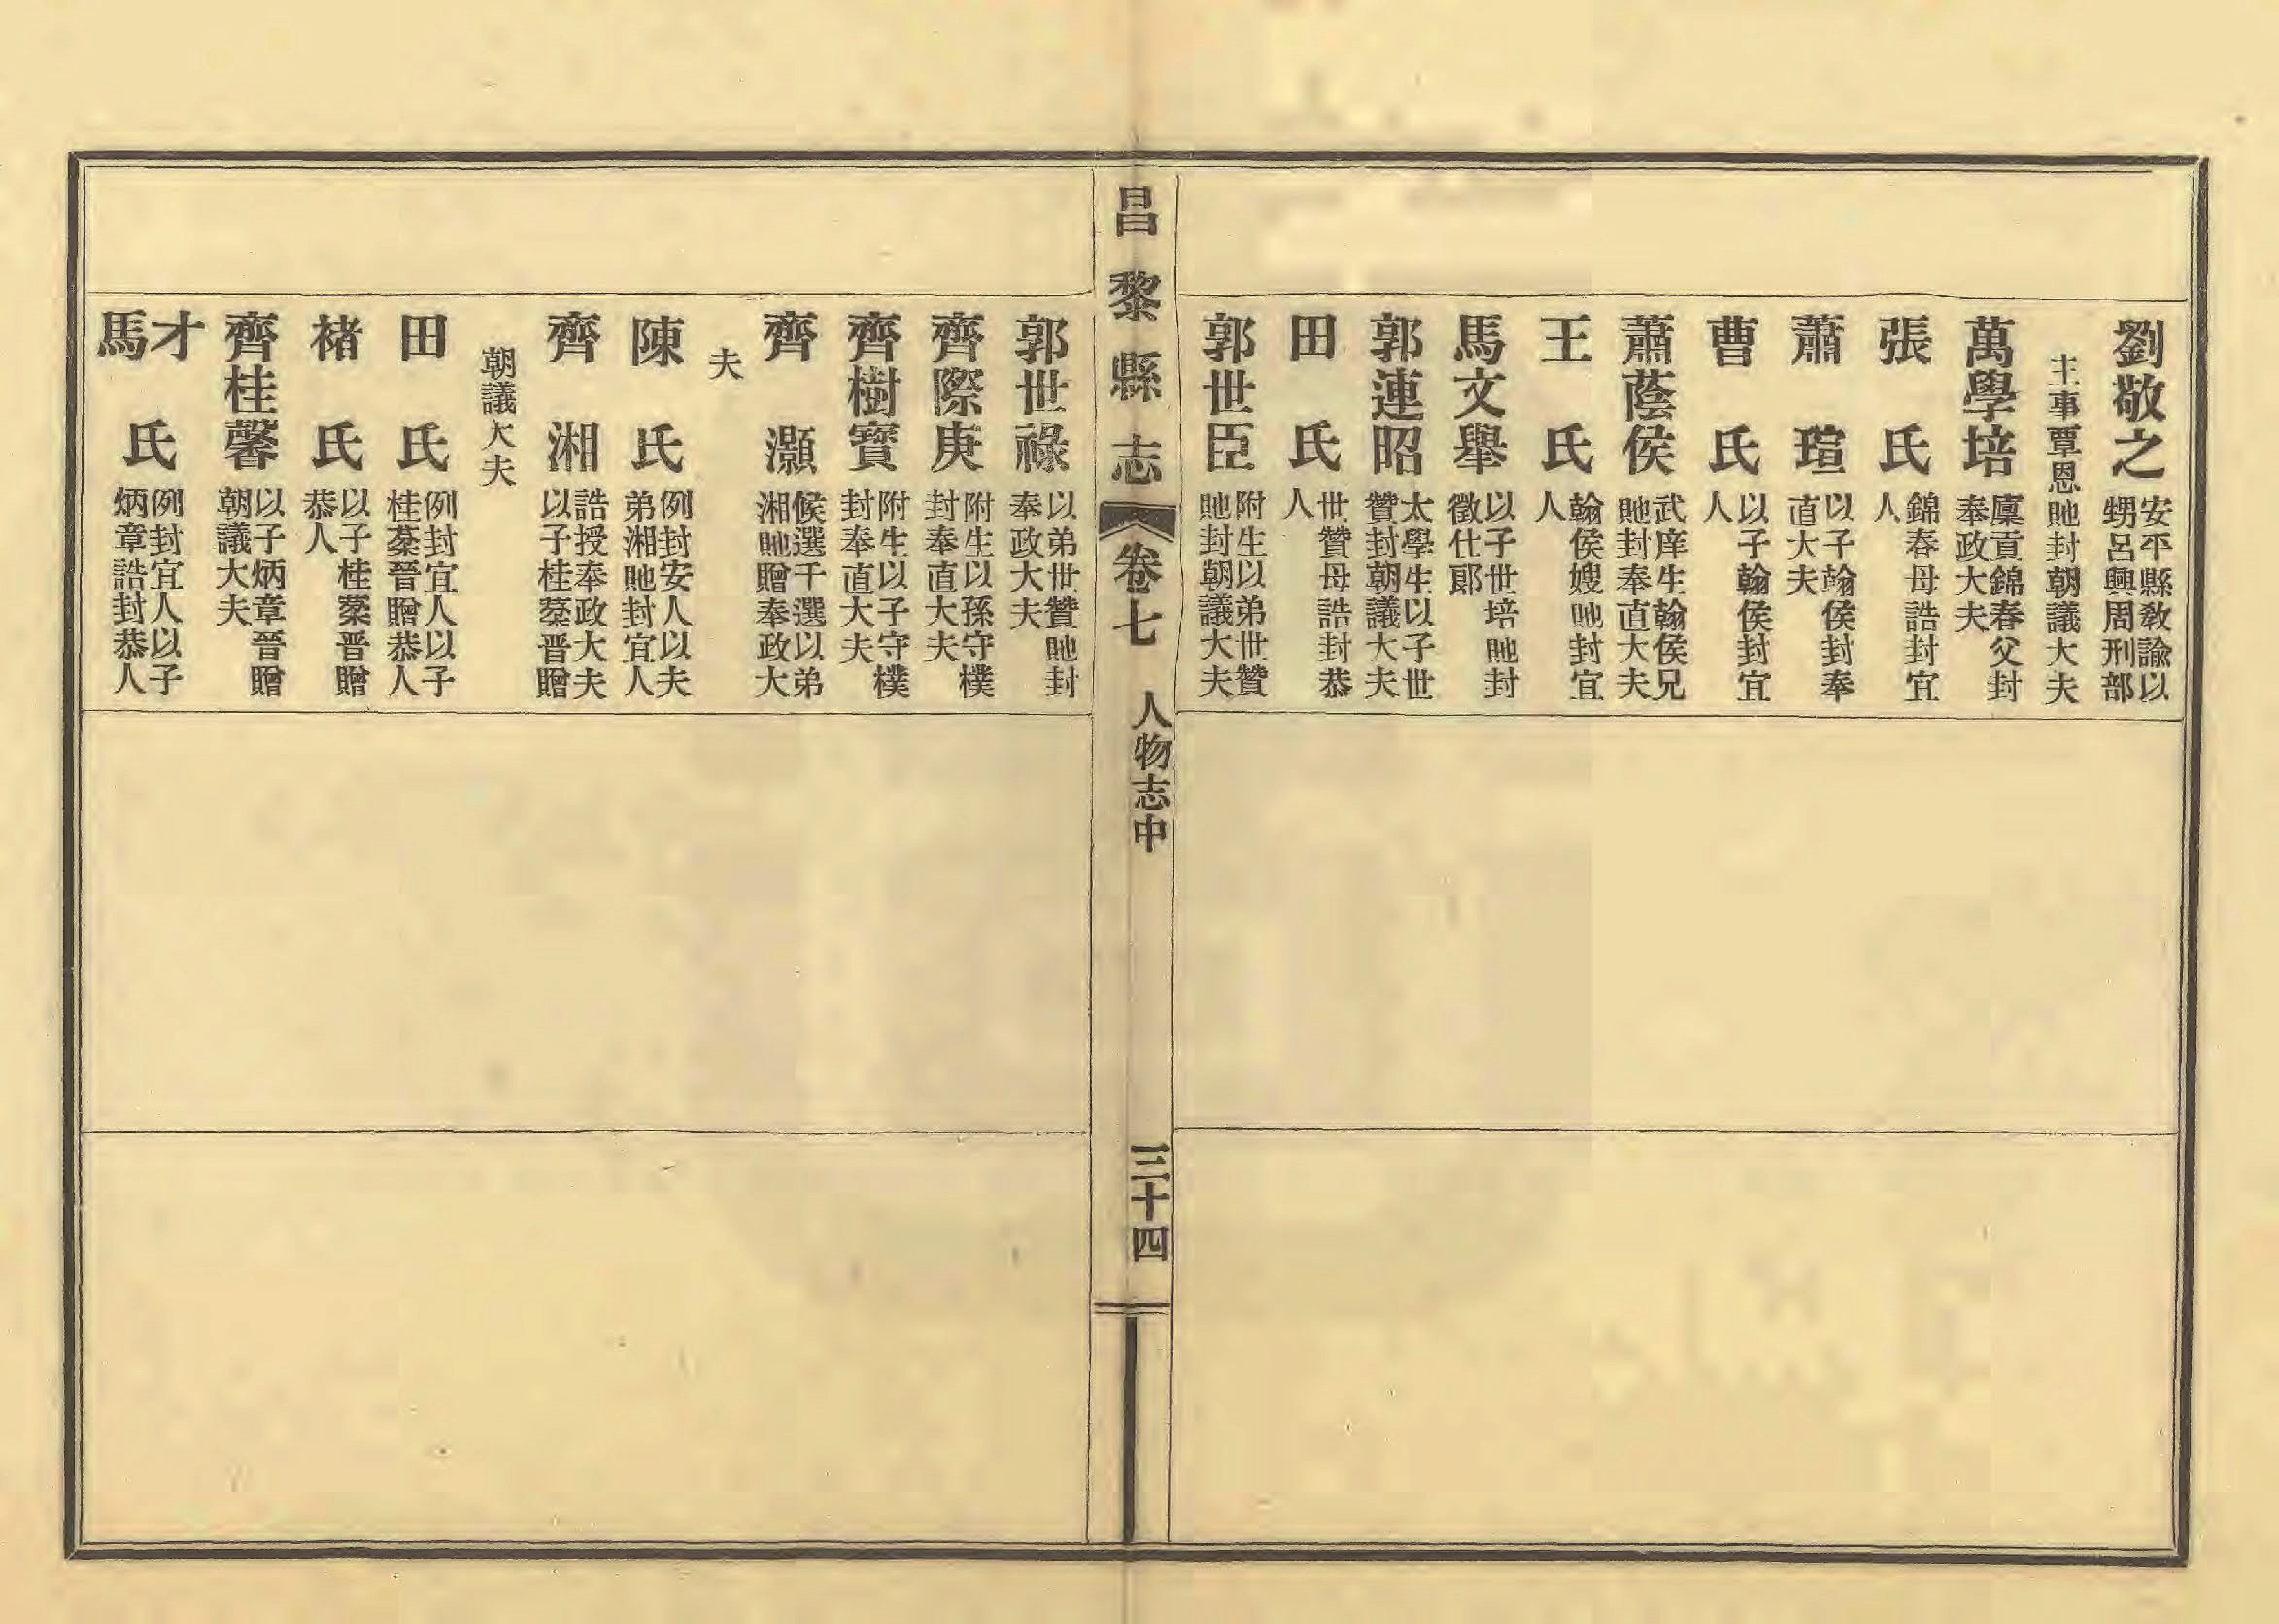 劉敬之 安平縣教諭以甥呂興周刑部
主事覃恩貤封朝議大夫
萬學培 廩貢錦春父封奉政大夫
張氏 錦春母誥封宜人
蕭瑄 以子翰侯封奉直大夫
曹氏 以子翰侯封宜人
蕭蔭侯 武庠生翰侯兄貤封奉直大夫
王氏 翰侯嫂貤封宜人
馬文舉 以子世培貤封徵仕郎
郭連昭 太學生以子世贊封朝議大夫
田氏 世贊母誥封恭人
郭世臣 附生以弟世贊貤封朝議大夫
昌黎縣志 卷七 人物志中 三十四
郭世祿 以弟世贊貤封奉政大夫
齊際庚 附生以孫守樸封奉直大夫
齊樹寶 附生以子守樸封奉直大夫
齊灝 候選千選以弟湘貤贈奉政大
夫
陳氏 例封安人以夫弟湘貤封宜人
齊湘 誥授奉政大夫以子桂棻晉贈
朝議大夫
田氏 例封宜人以子桂棻晉贈恭人
褚氏 以子桂棻晉贈恭人
齊桂馨 以子炳章晉贈朝議大夫
才馬氏 例封宜人以子炳章誥封恭人